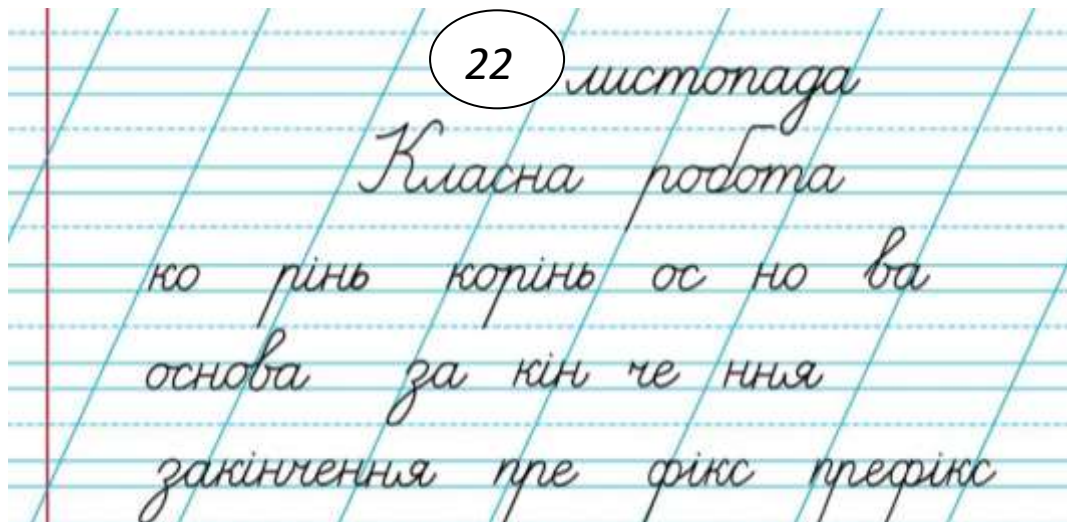 22 листопада
Класна робота
ко рінь корінь ос но ва
основа за кін че ння
закінчення пре фікс префікс